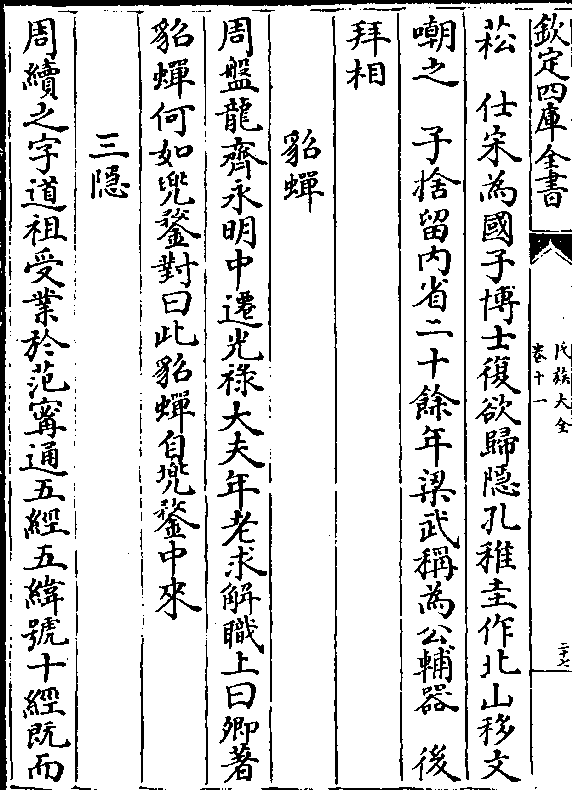 欽定四庫全書
氏族大全
卷十一
二十七
菘　仕宋為國子博士復欲歸隱孔稚圭作北山移文
嘲之　子捨留内省二十餘年梁武稱為公輔器　後
拜相
貂蟬
周盤龍齊永明中遷光祿大夫年老求解職上曰卿著
貂蟬何如兜鍪對曰此貂蟬自兜鍪中來
三隱
周續之字道祖受業於范甯通五經五緯號十經既而